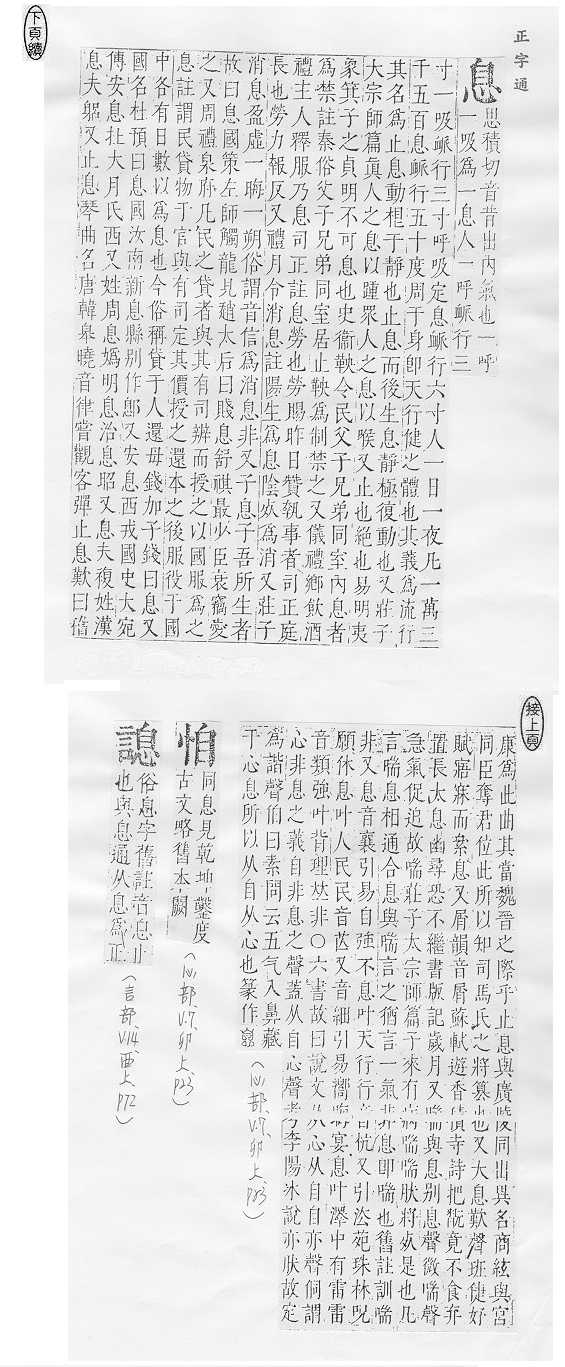 下頁續
正字通
息
思積切音昔出內氣也一呼
一吸爲一息人一呼䘑行三
寸一吸䘑行三寸呼吸定息䘑行六寸人一日一夜凡一萬三
千五百息䘑行五十度周于身卽天行健之體也其義爲流行
其名爲止息動相于靜也止息而後生息靜極復動也又莊子
大宗師篇眞人之息以踵眾人之息以喉又止也絕也易明夷
象箕子之貞明不可息也史衞鞅令民父子兄弟同室內息者
爲禁註秦俗父子兄弟同室居止鞅爲制禁之又儀禮鄉飲酒
禮主人釋服乃息司正註息勞也勞賜昨日贊執事者司正庭
長也勞力報反又禮月令消息註陽生爲息陰死爲消又莊子
消息盈虛一晦一朔俗謂音信爲消息非又子息子吾所生者
故曰息國策左師觸龍見趙太后曰賤息舒祺最少臣衰竊愛
之又周禮泉府凡民之貸者與其有司辨而授之以國服爲之
息註謂民貸物于官與有司定其價授之還本之後服役于國
中各有日數以爲息也今俗稱貸于人還母錢加子錢曰息又
國名杜預曰息國汝南新息縣別作鄎又安息西戎國史大宛
傳安息在大月氏西又姓周息嬀明息治息昭又息夫複姓漢
息夫躬又止息琴曲名唐韓皋曉音律嘗觀客彈止息歎曰嵇
接上頁
康爲此曲其當魏晉之際乎止息與廣陵同出異名商絃與宮
同臣奪君位此所以知司馬氏之將篡也又大息歎聲班倢妤
賦寤寐而絫息又屑韻音屑蘇軾遊香積寺詩把翫竟不食弃
置長太息幽尋恐不繼書版記歲月又喘與息別息聲微喘聲
急氣促追故喘莊子大宗師篇子來有病喘喘肰將死是也凡
言喘息相通合息與喘言之猶言一氣非息卽喘也舊註訓喘
非又息音襄引易自強不息叶天行行音杭又引法苑珠林呪
願休息叶人民民音茫又音細引易嚮晦宴息叶澤中有雷雷
音類強叶背理𠀤非○六書故曰說文从心从自自亦聲侗謂
心非息之義自非息之聲蓋从自心聲者李陽冰說亦肰故定
爲諧聲伯曰素問云五气入鼻藏
于心息所以从自从心也篆作
(心部、V.7、卯上、P.23)
㤙
同息見乾坤鑿度
古文略舊本闕
(心部、V.7、卯上、P.23)
謥
俗息字舊註音息止
也與息通从息爲正
(言部、V.14、酉上、P.72)